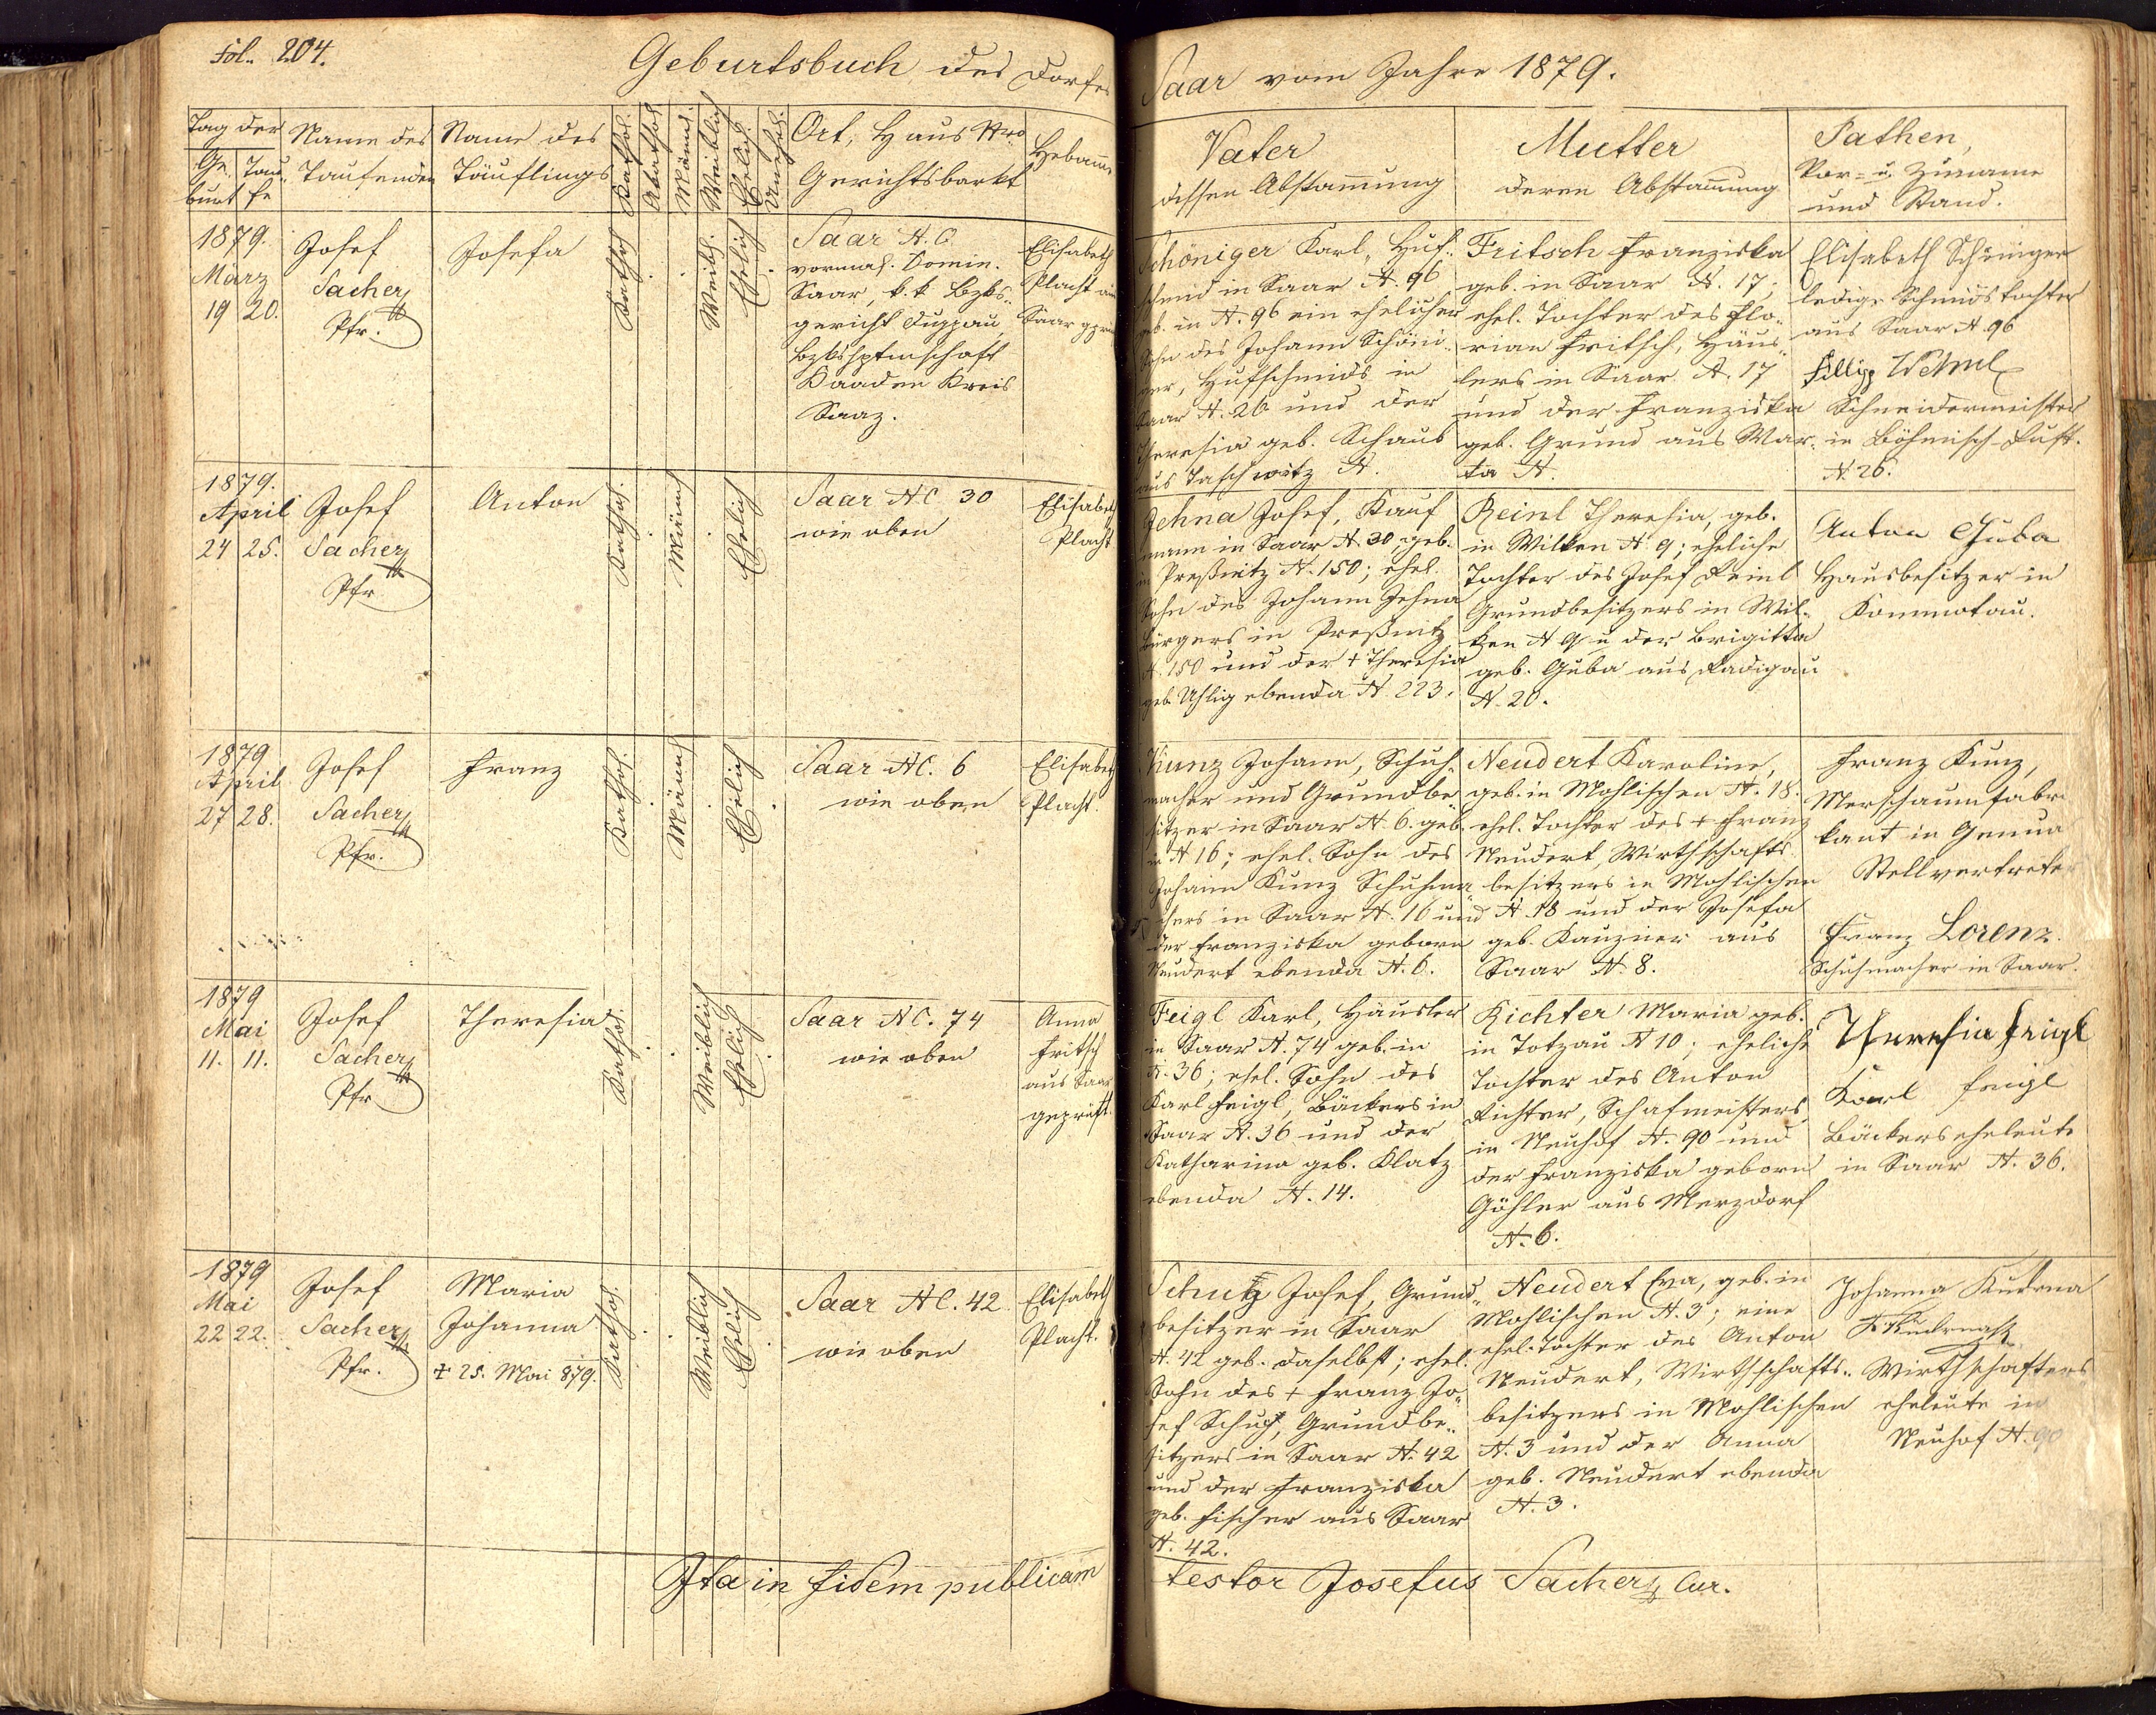 Fol. 204.
Geburtsbuch des Dorfes
Saar vom Jahre 1879.
Tag der
Geburt
Taufe
Name des
Taufenden
Name des
Täuflings
Kathol.
Akathol.
Männl.
Weiblich
Ehelich.
Unehel.
Ort, Haus Nro
Gerichtsbarkt
Hebamme
Vater
dessen Abstammung
Mutter
deren Abstammung
Pathen,
Vor- u. Zuname
und Stand.
1879.
März
19 20.
Josef
Sacher
Pfr.
Josefa
Kathol.
Weibl.
Ehelich
Saar N.C.
vormal. Domin.
Saar, k. k. Bzks-
gericht Duppau,
Bzkshptmschaft
Kaaden Kreis
Saaz.
Elisabeth
Placht aus
Saar gepr
Schöniger Karl, Huf-
schmid in Saar N. 96
geb. in N. 96 ein ehelicher
Sohn des Johann Schöni-
ger, Hufschmids in
Saar N. 26 und der
Theresia geb. Schaub
aus Taschwitz N.
Fritsch Franziska
geb. in Saar N. 17;
ehel. Tochter des Flo-
rian Fritsch, Häus-
lers in Saar N. 17
und der Franziska
geb. Grund aus War-
ta N.
Elisabeth Schöniger
ledige Schmidstochter
aus Saar N. 96
Fillipp
Schneidermeister
in Böhmisch-Rust.
N. 26.
1879.
April
24 25.
Josef
Sacher
Pfr.
Anton
Kathol.
Männl.
Ehelich
Saar N.C. 30
wie oben
Elisabeth
Placht
Jehna Josef, Kauf
mann in Saar N. 30, geb.
in Preßnitz N. 150; ehel.
Sohn des Johann Jehna
Bürgers in Preßnitz
N. 150 und der † Theresia
geb. Uhlig ebenda N. 223.
Reinl Theresia, geb.
in Wilken N. 9; eheliche
Tochter des Josef Reinl
Grundbesitzers in Wil-
ken N 9 u. der Brigitta
geb. Guba aus Radigau
N. 20.
Anton Guba
Hausbesitzer in
Kommotau.
1879
April
27 28.
Josef
Sacher
Pfr.
Franz
Kathol.
Männl.
Ehelich
Saar N.C. 6
wie oben
Elisabeth
Placht.
Kunz Johann, Schuh-
macher und Grundbe-
sitzer in Saar N. 6. geb.
in N 16; ehel. Sohn des
Johann Kunz Schuhma-
chers in Saar N. 16 und
der Franziska geborn
Neudert ebenda N. 6.
Neudert Karoline,
geb. in Mohlischen N. 18.
ehel. Tochter des † Franz
Neudert, Wirthschafts-
besitzers in Mohlischen
N. 18 und der Josefa
geb. Kauzner aus
Saar N. 8.
Franz Kunz,
Merschaumfabri
kant in Genua
Stellvertreter
Franz Lorenz.
Schuhmacher in Saar.
1879
Mai
11. 11.
Josef
Sacher
Pfr
Theresia
Kathol.
Weiblich
Ehelich
Saar N.C. 74
wie oben
Anna
Fritsch
aus Saar
geprüft.
Feigl Karl, Häusler
in Saar N. 74 geb. in
N. 36; ehel. Sohn des
Karl Feigl, Bäckers in
Saar N. 36 und der
Katharina geb. Klatz
ebenda N. 14.
Richter Maria geb.
in Totzau N 10; eheliche
Tochter des Anton
Richter, Schafmeisters
in Neuhof N. 90 und
der Franziska geborn
Göhler aus Merzdorf
N. 6.
Theresia Feigl
Karl Feigl
Bäckerseheleute
in Saar N. 36.
1879
Mai
22 22.
Josef
Sacher
Pfr.
Maria
Johanna
† 25. Mai 879.
Kathol.
Weiblich
Ehelich
Saar N.C. 42
wie oben
Elisabeth
Placht.
Schutz Josef, Grund-
besitzer in Saar
N. 42 geb. daselbst; ehel.
Sohn des † Franz Jo-
sef Schutz, Grundbe-
sitzers in Saar N. 42
und der Franziska
geb. Fischer aus Saar
N. 42.
Neudert Eva, geb. in
Mohlischen N. 3; eine
ehel. Tochter des Anton
Neudert, Wirthschafts-
besitzers in Mohlischen
N. 3 und der Anna
geb. Neudert ebenda
N. 3.
Johanna Kudrna
Wirthschafters
eheleute in
Neuhof N. 90
Ita in fidem publicam
testor Josefus Sacher Cur.